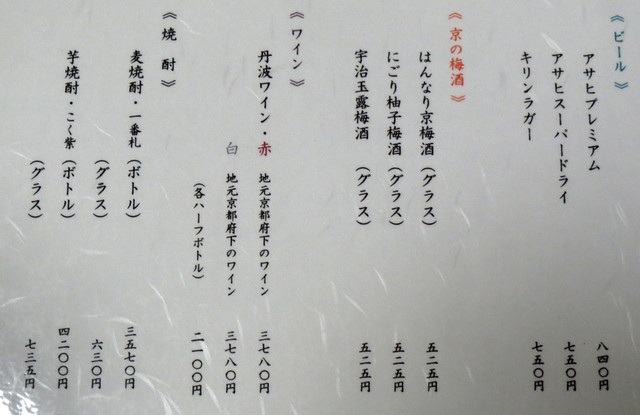 《ビール》
アサヒプレミアム 八四〇円
アサヒスーパードライ 七五〇円
キリンラガー 七五〇円
《京の梅酒》
はんなり京梅酒(グラス) 五二五円
にごり柚子梅酒(グラス) 五二五円
宇治玉露梅酒(グラス) 五二五円
《ワイン》
丹波ワイン・赤 地元京都府下のワイン 三七八〇円
白 地元京都府下のワイン 三七八〇円
(各ハーフボトル) 二一〇〇円
《焼酎》
麦焼酎・一番札(ボトル) 三五七〇円
(グラス) 六三〇円
芋焼酎・こく紫(ボトル) 四二〇〇円
(グラス) 七三五円